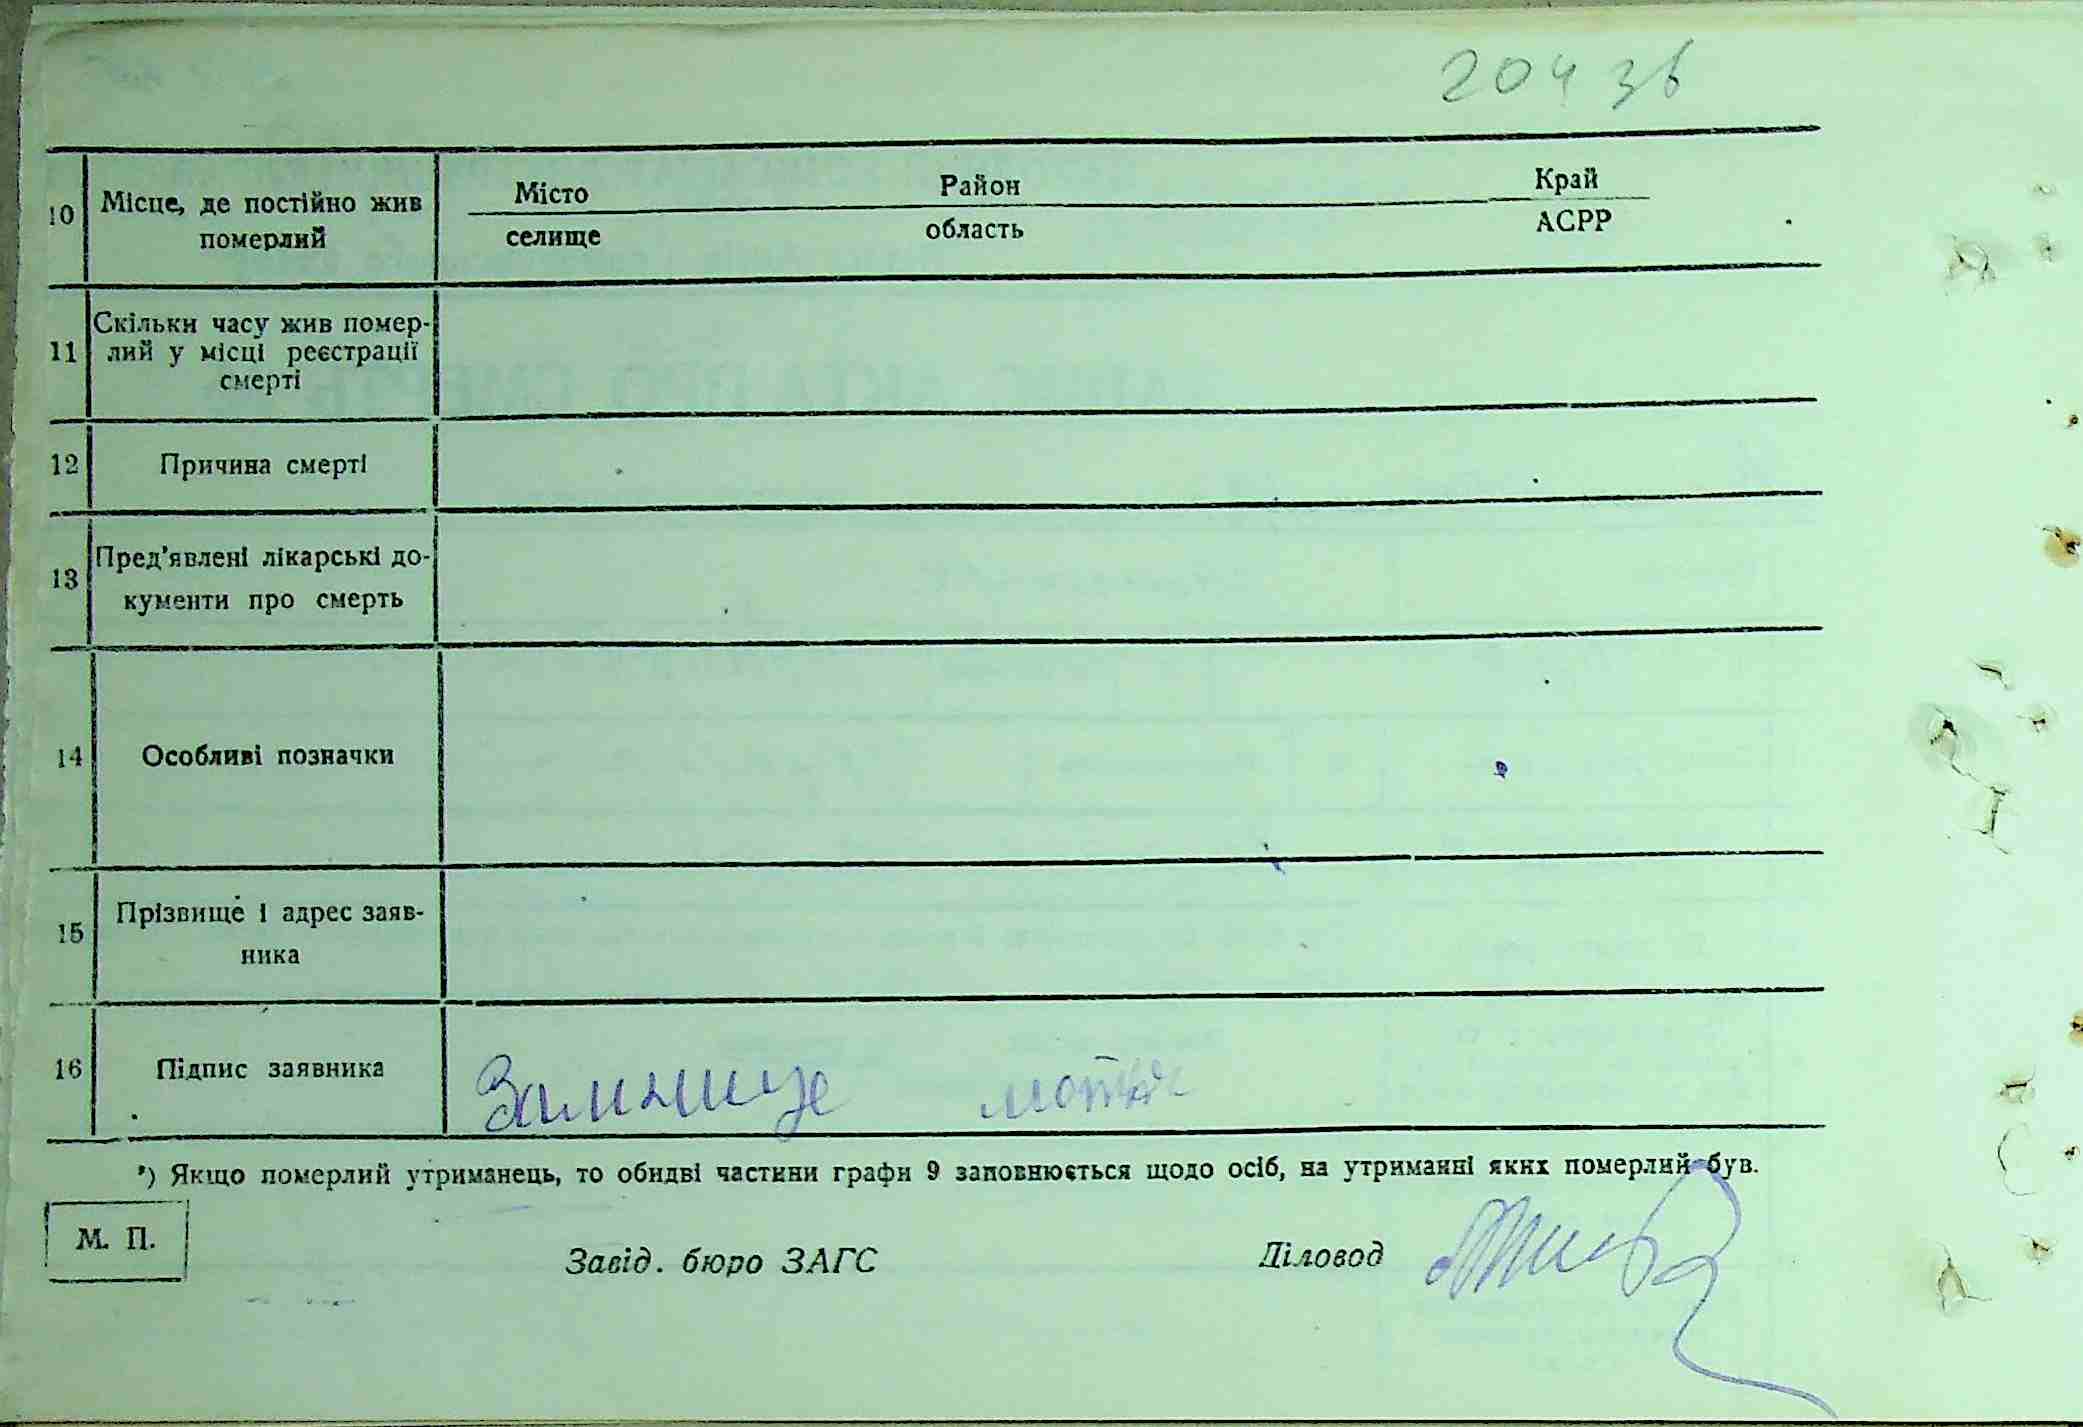 204 зв
10 Місце, де постійно жив померлий Місто селище Район область Край АСРР
11 Скільки часу жив помер-
лий у місці реєстрації
смерті
12 Причина смерті
13 Пред'явлені лікарські до-
кументи про смерть
14 Особливі позначки
15 Прізвище і адрес заяв-
ника
16 Підпис заявника
*) Якщо померлий утриманець, то обидві частини графи 9 заповнюється щодо осіб, на утриманні яких померлий був.
М. П.
Завід. бюро ЗАГС Діловод